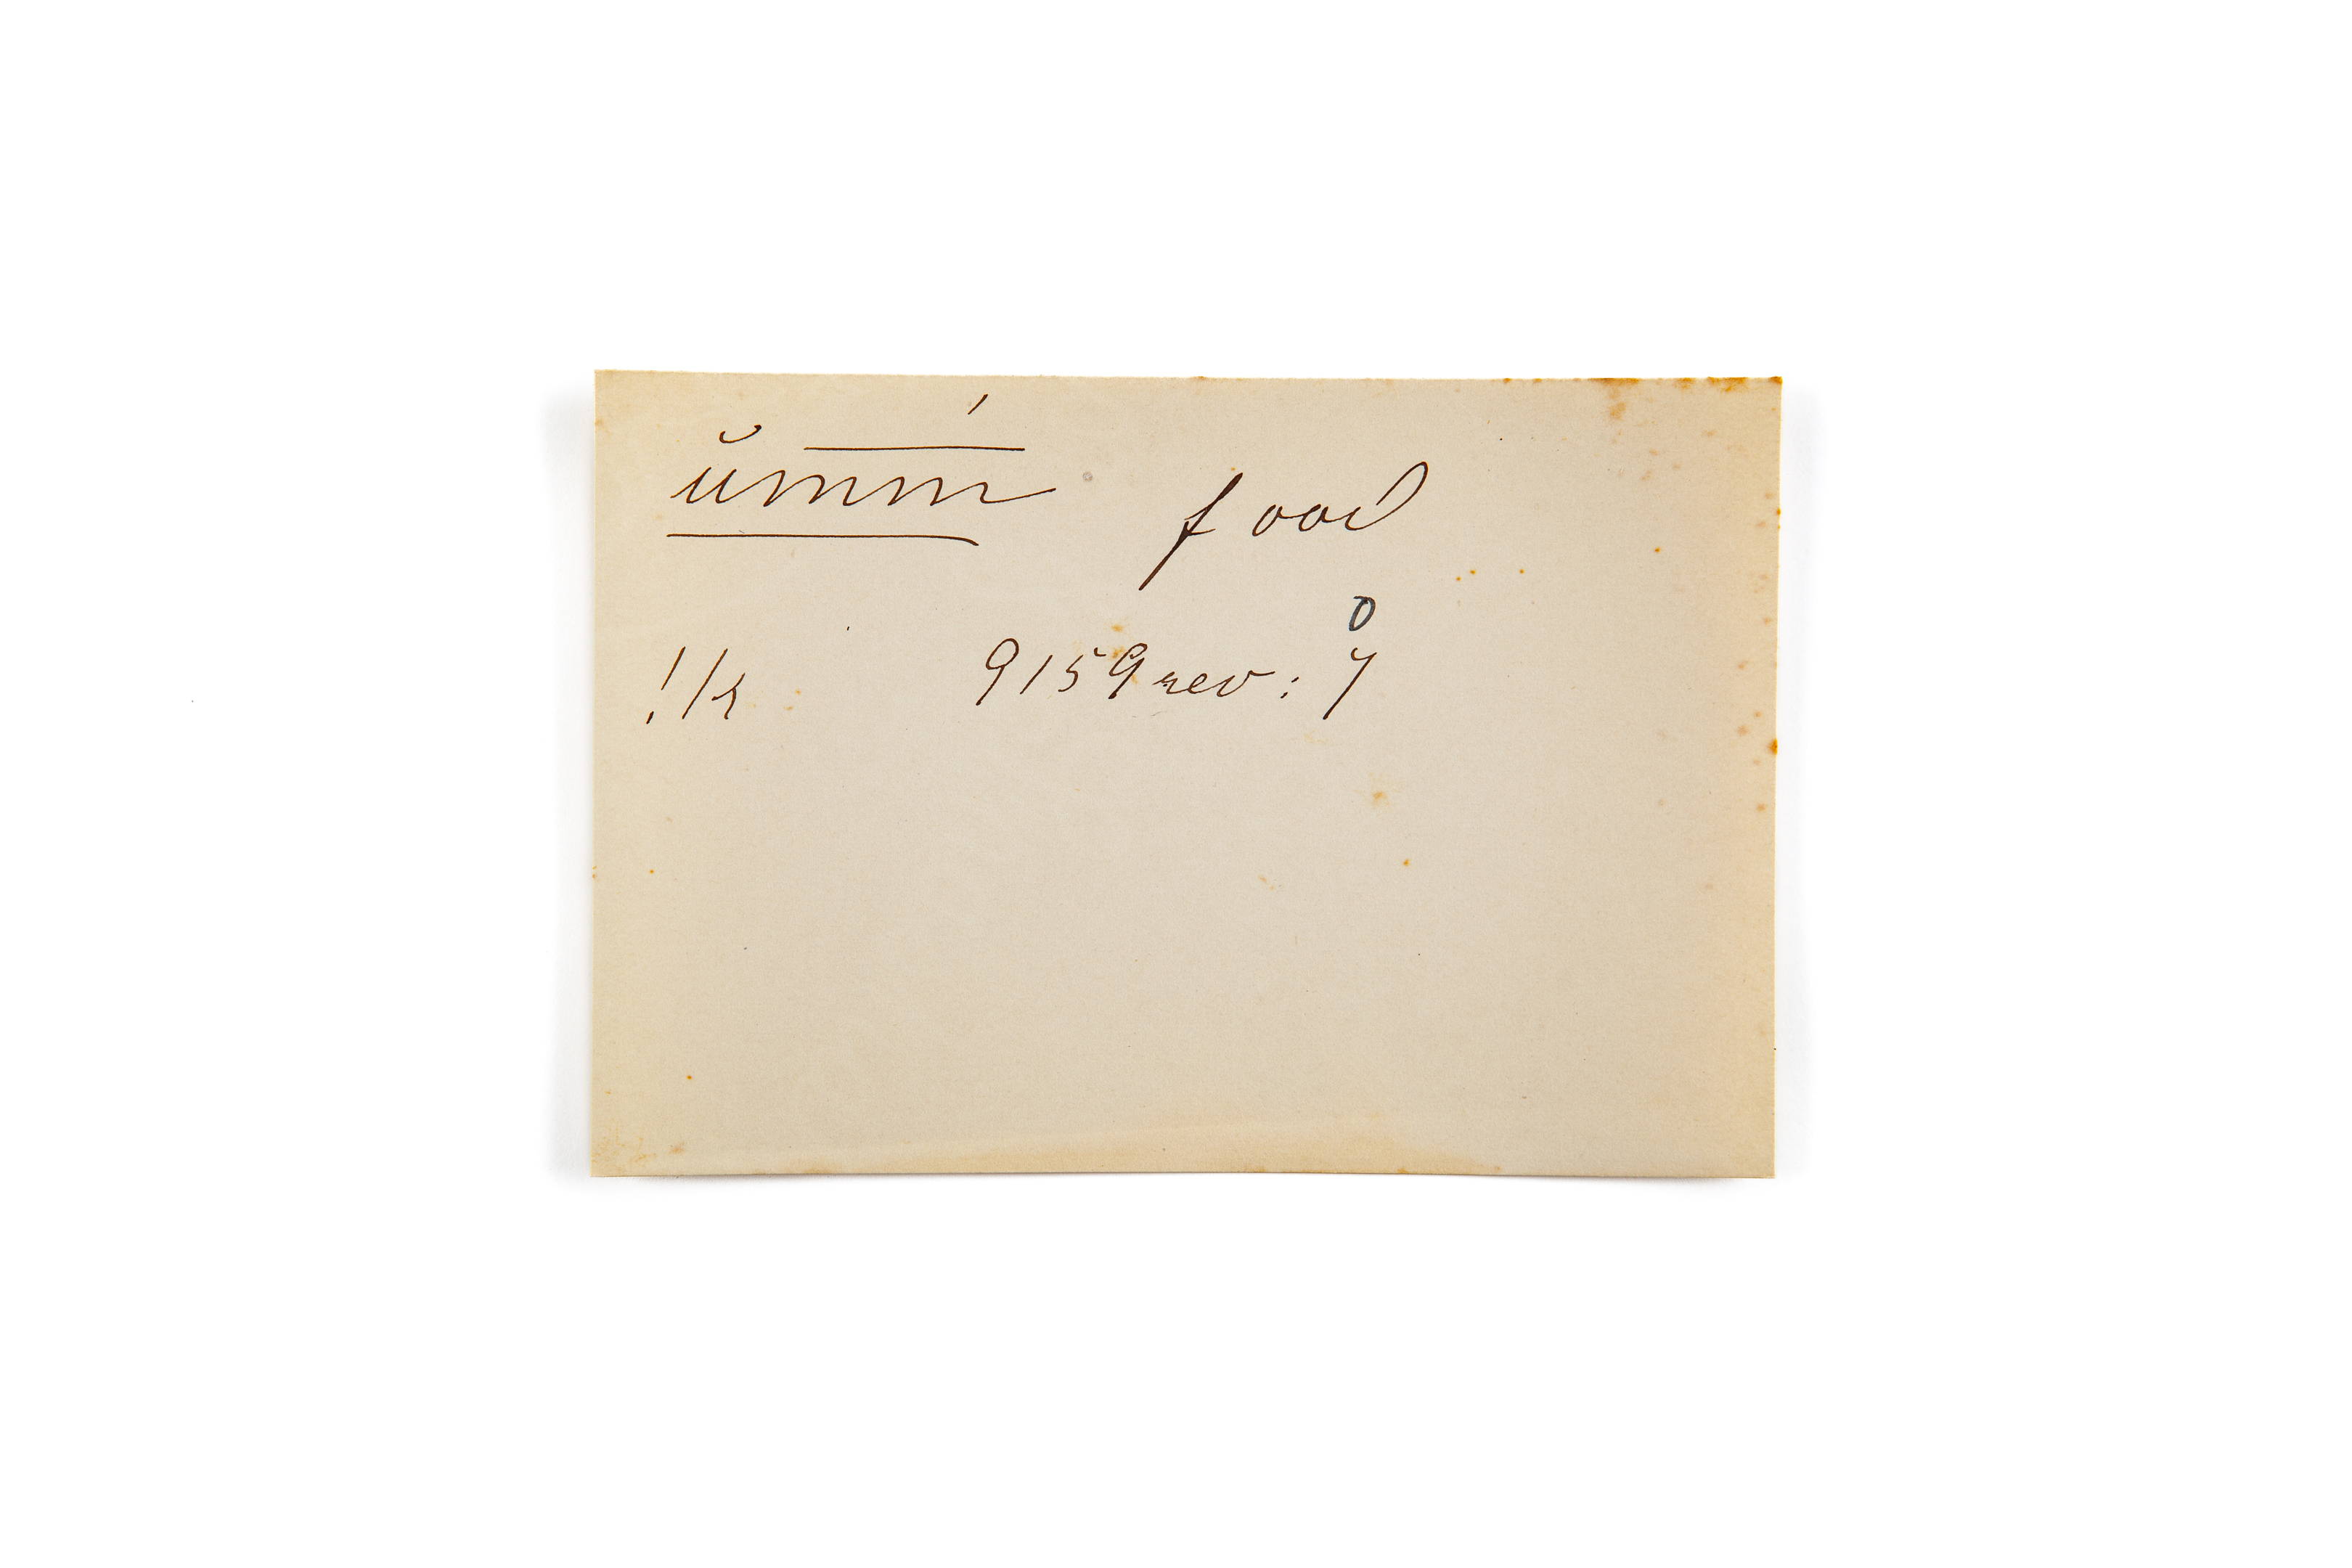 ŭmm̄́ food
!/k 9159 rev: 7
0